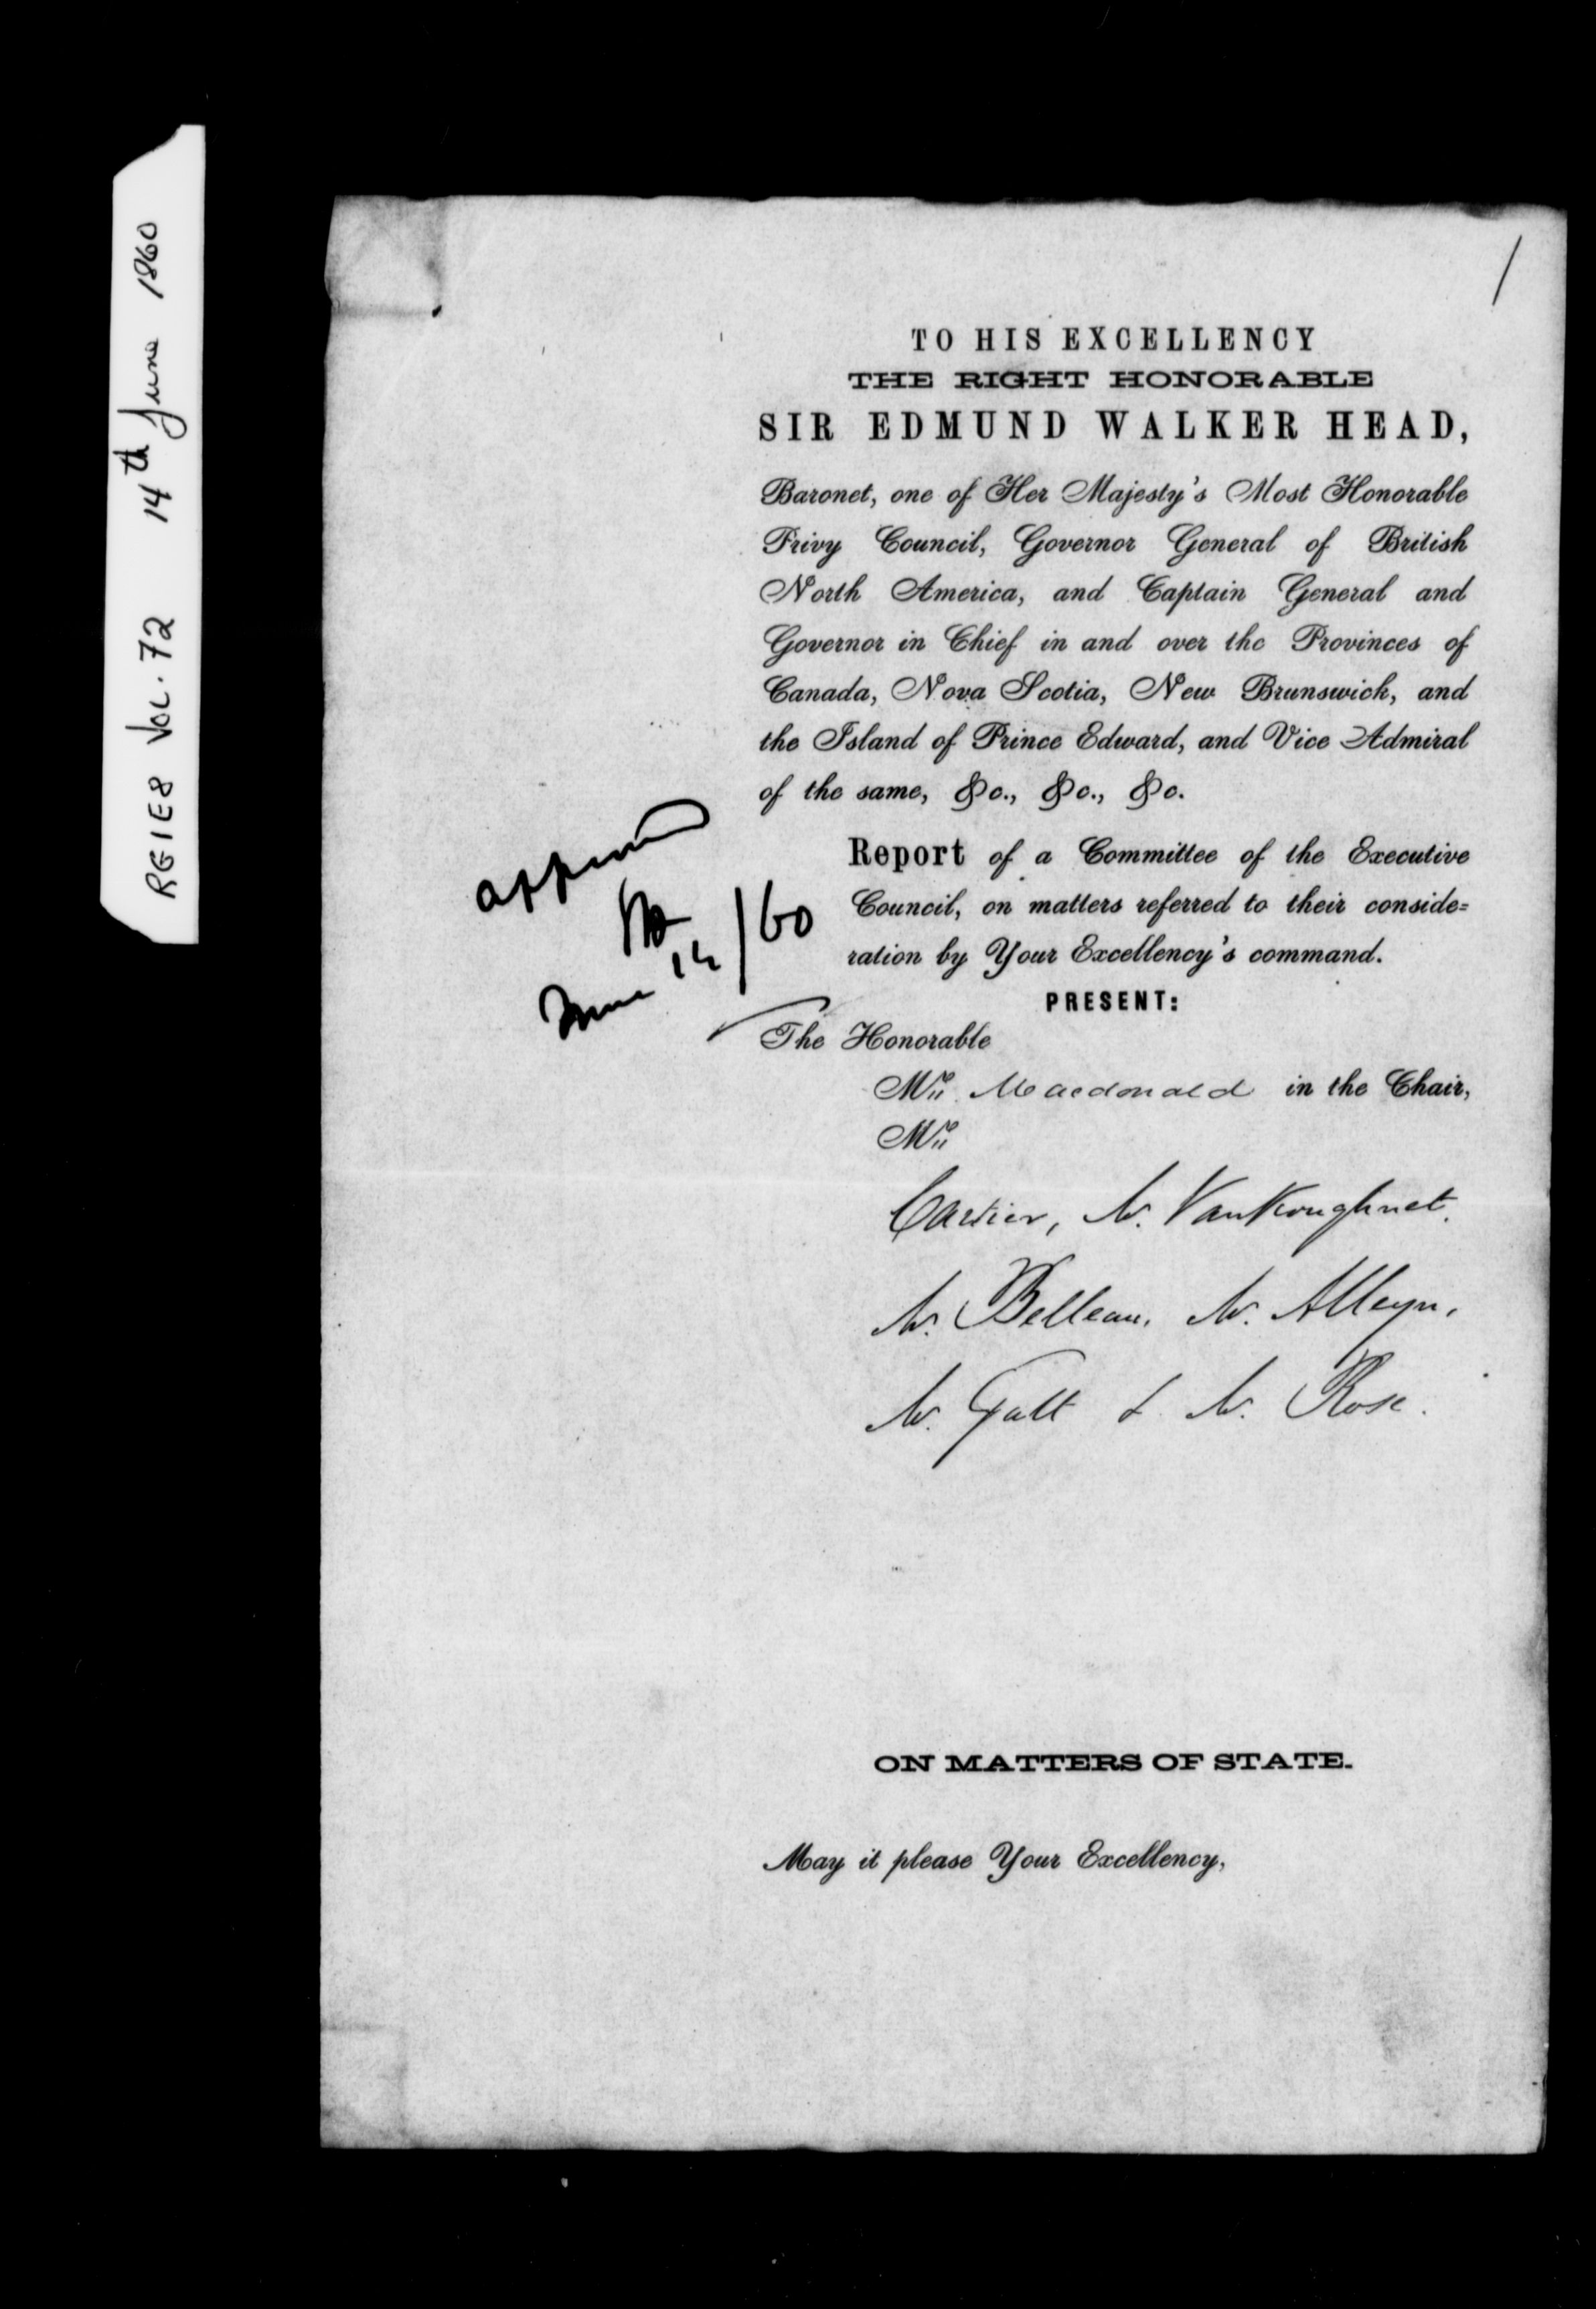 RG1E8 VOL. 72 14th June 1860
/
TO HIS EXCELLENCY
THE RIGHT HONORABLE
SIR EDMUND WALKER HEAD,
Baronet, one of Her Majesty's Most Honorable
Privy Council, Governor General of British
North America, and Captain General and
Governor in Chief in and over the Provinces of
Canada, Nova Scotia, New Brunswick, and
the Island of Prince Edward, and Vice Admiral
of the same, &c., &c., &c.
approved
June 14/60
Report of a Committee of the Executive
Council, on matters referred to their conside=
ration by Your Excellency's command.
PRESENT:
The Honorable
Mr. Macdonald in the Chair,
Mr.
Cartier, Mr. VanKoughnet.
Mr. Belleau. Mr. Alleyn.
Mr. Galt & Mr. Rose.
ON MATTERS OF STATE.
May it please Your Excellency,